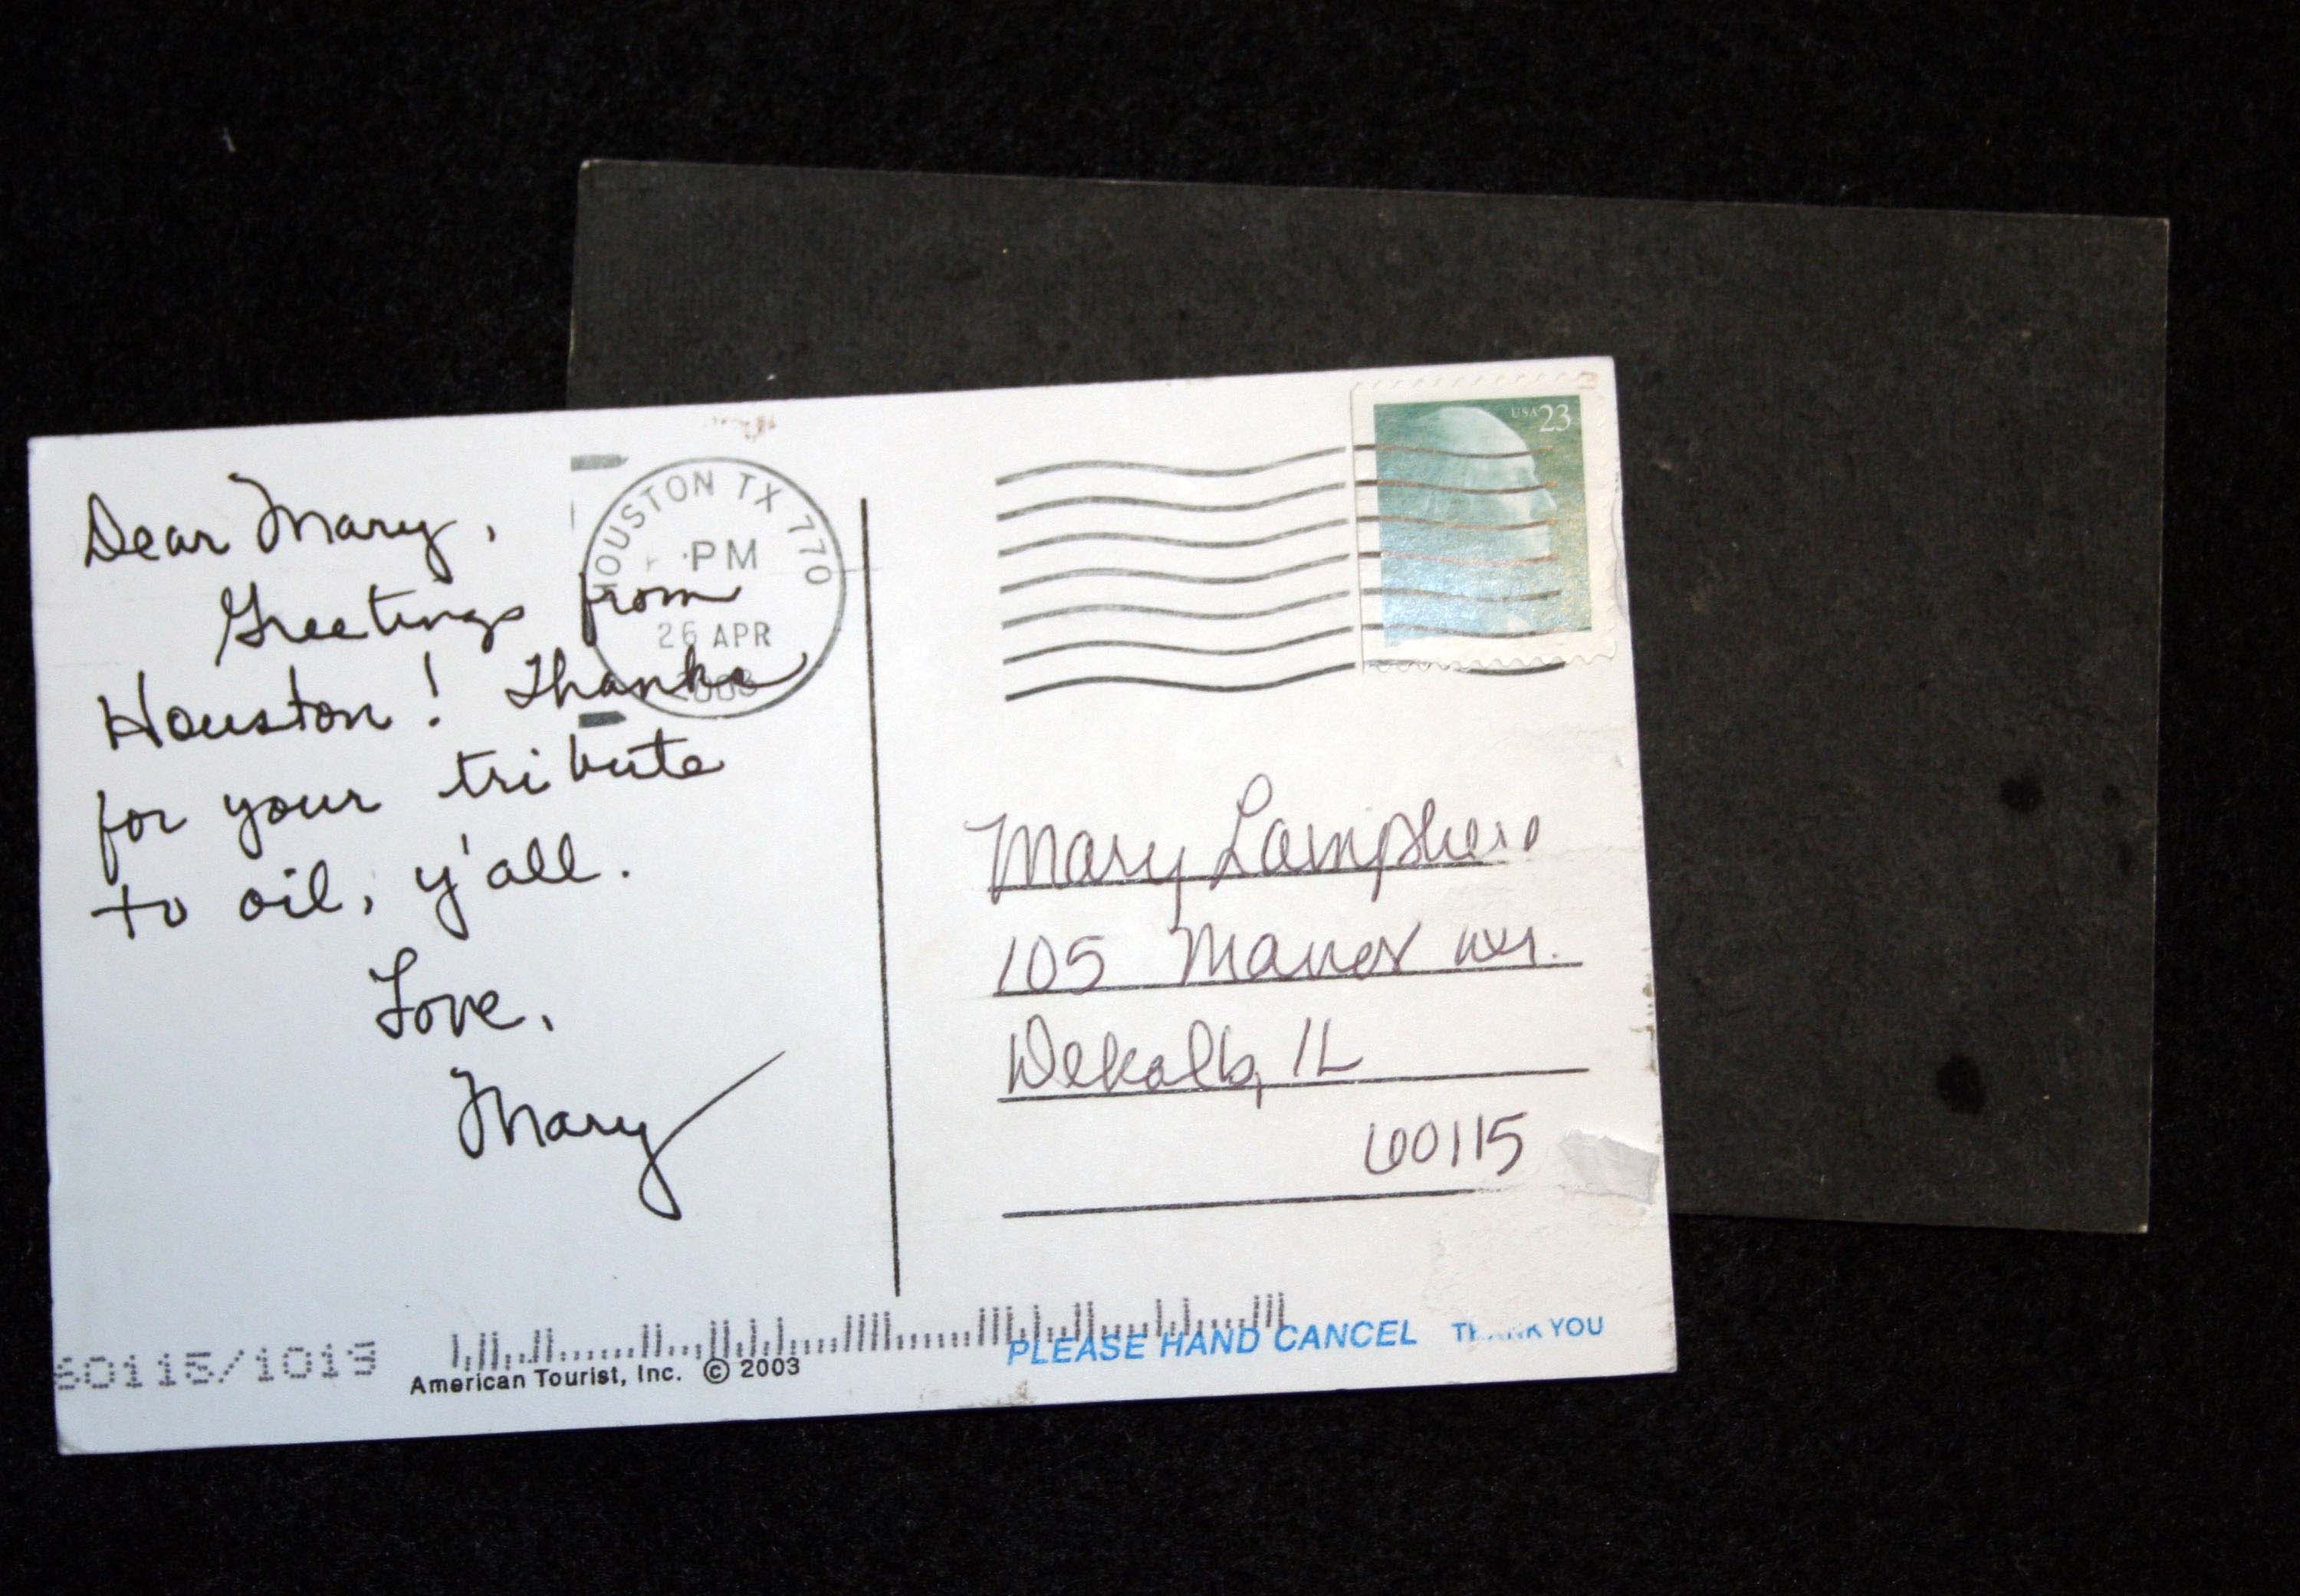 Dear Mary,
Greetings from
Houston! Thanks
for your tribute
to oil, y'all.
Love,
Mary
HOUSTON TX 770
PM
26 APR
USA 23
Mary
105 Manor
Dekalb, IL
60115
60115/1013
American Tourist, Inc. © 2003
PLEASE HAND CANCEL THANK YOU